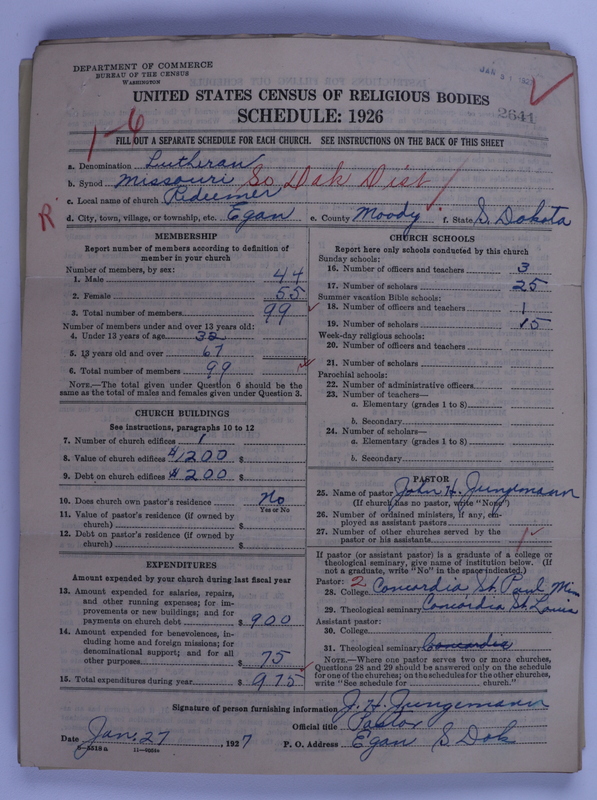 DEPARTMENT OF COMMERCE
BUREAU OF THE CENSUS
WASHINGTON
JAN 31 192
UNITED STATES CENSUS OF RELIGIOUS BODIES
SCHEDULE: 1926
2641
1-6
FILL OUT A SEPARATE SCHEDULE FOR EACH CHURCH. SEE INSTRUCTIONS ON THE BACK OF THIS SHEET
a. Denomination Lutheran
b. Synod Missouri So Dak Dist
c. Local name of church Redeemer
R
d. City, town, village, or township, etc. Egan e. County Moody f. State S. Dakota
MEMBERSHIP
Report number of members according to definition of
member in your church
Number of members, by sex:
1. Male 44
2. Female 55
3. Total number of members 99
Number of members under and over 13 years old:
4. Under 13 years of age 32
5. 13 years old and over 67
6. Total number of members 99
NOTE.—The total given under Question 6 should be the
same as the total of males and females given under Question 3.
CHURCH BUILDINGS
See instructions, paragraphs 10 to 12
7. Number of church edifices 1
8. Value of church edifices $1200 $
9. Debt on church edifices $200 $
10. Does church own pastor's residence No
Yes or No
11. Value of pastor's residence (if owned by
church) $
12. Debt on pastor's residence (if owned by
church) $
EXPENDITURES
Amount expended by your church during last fiscal year
13. Amount expended for salaries, repairs,
and other running expenses; for im-
provements or new buildings; and for
payments on church debt $ 900
14. Amount expended for benevolences, in-
cluding home and foreign missions; for
denominational support; and for all
other purposes $ 75
15. Total expenditures during year $ 975
CHURCH SCHOOLS
Report here only schools conducted by this church
Sunday schools:
16. Number of officers and teachers 3
17. Number of scholars 25
Summer vacation Bible schools:
18. Number of officers and teachers 1
19. Number of scholars 15
Week-day religious schools:
20. Number of officers and teachers
21. Number of scholars
Parochial schools:
22. Number of administrative officers
23. Number of teachers—
a. Elementary (grades 1 to 8)
b. Secondary
24. Number of scholars—
a. Elementary (grades 1 to 8)
b. Secondary
PASTOR
25. Name of pastor John H. Jungemann
(If church has no pastor, write "None")
26. Number of ordained ministers, if any, em-
ployed as assistant pastors
27. Number of other churches served by the
pastor or his assistants
If pastor (or assistant pastor) is a graduate of a college or
theological seminary, give name of institution below. (If
not a graduate, write "No" in the space indicated.)
Pastor: 2
28. College Concordia St. Paul Min
29. Theological seminary Concordia St. Louis
Assistant pastor:
30. College
31. Theological seminary Concordia
NOTE.—Where one pastor serves two or more churches,
Questions 28 and 29 should be answered only on the schedule
for one of the churches; on the schedules for the other churches,
write "See schedule for church."
Signature of person furnishing information J. H. Jungemann
Official title Pastor
Date Jan. 27, 1927 P. O. Address Egan S Dak
8—5518a 11—9051a